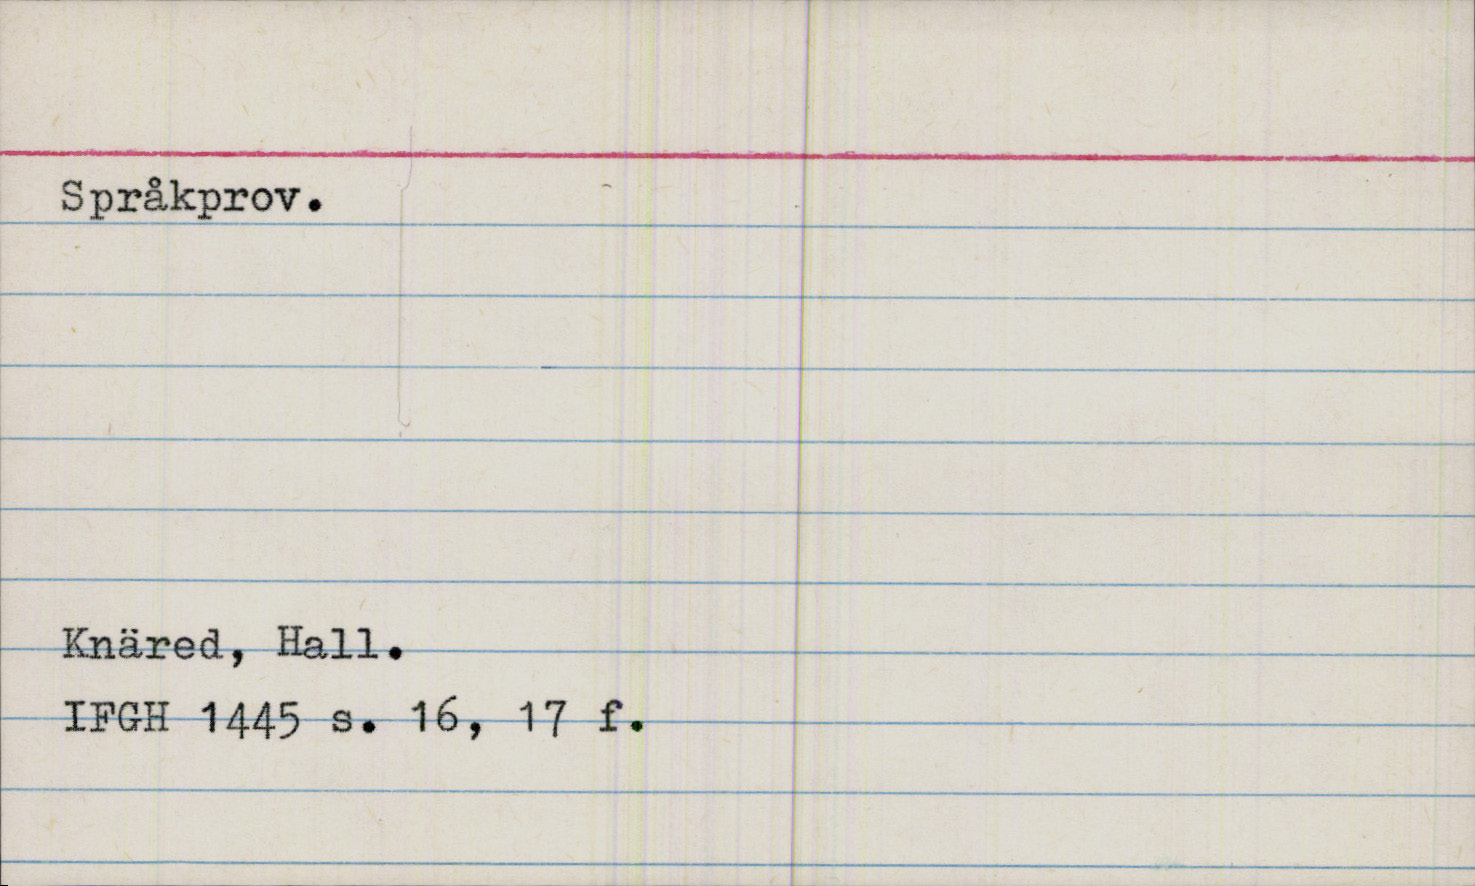 Språkprov.
Knäred, Hall.
IFGH 1445 s. 16, 17 f.